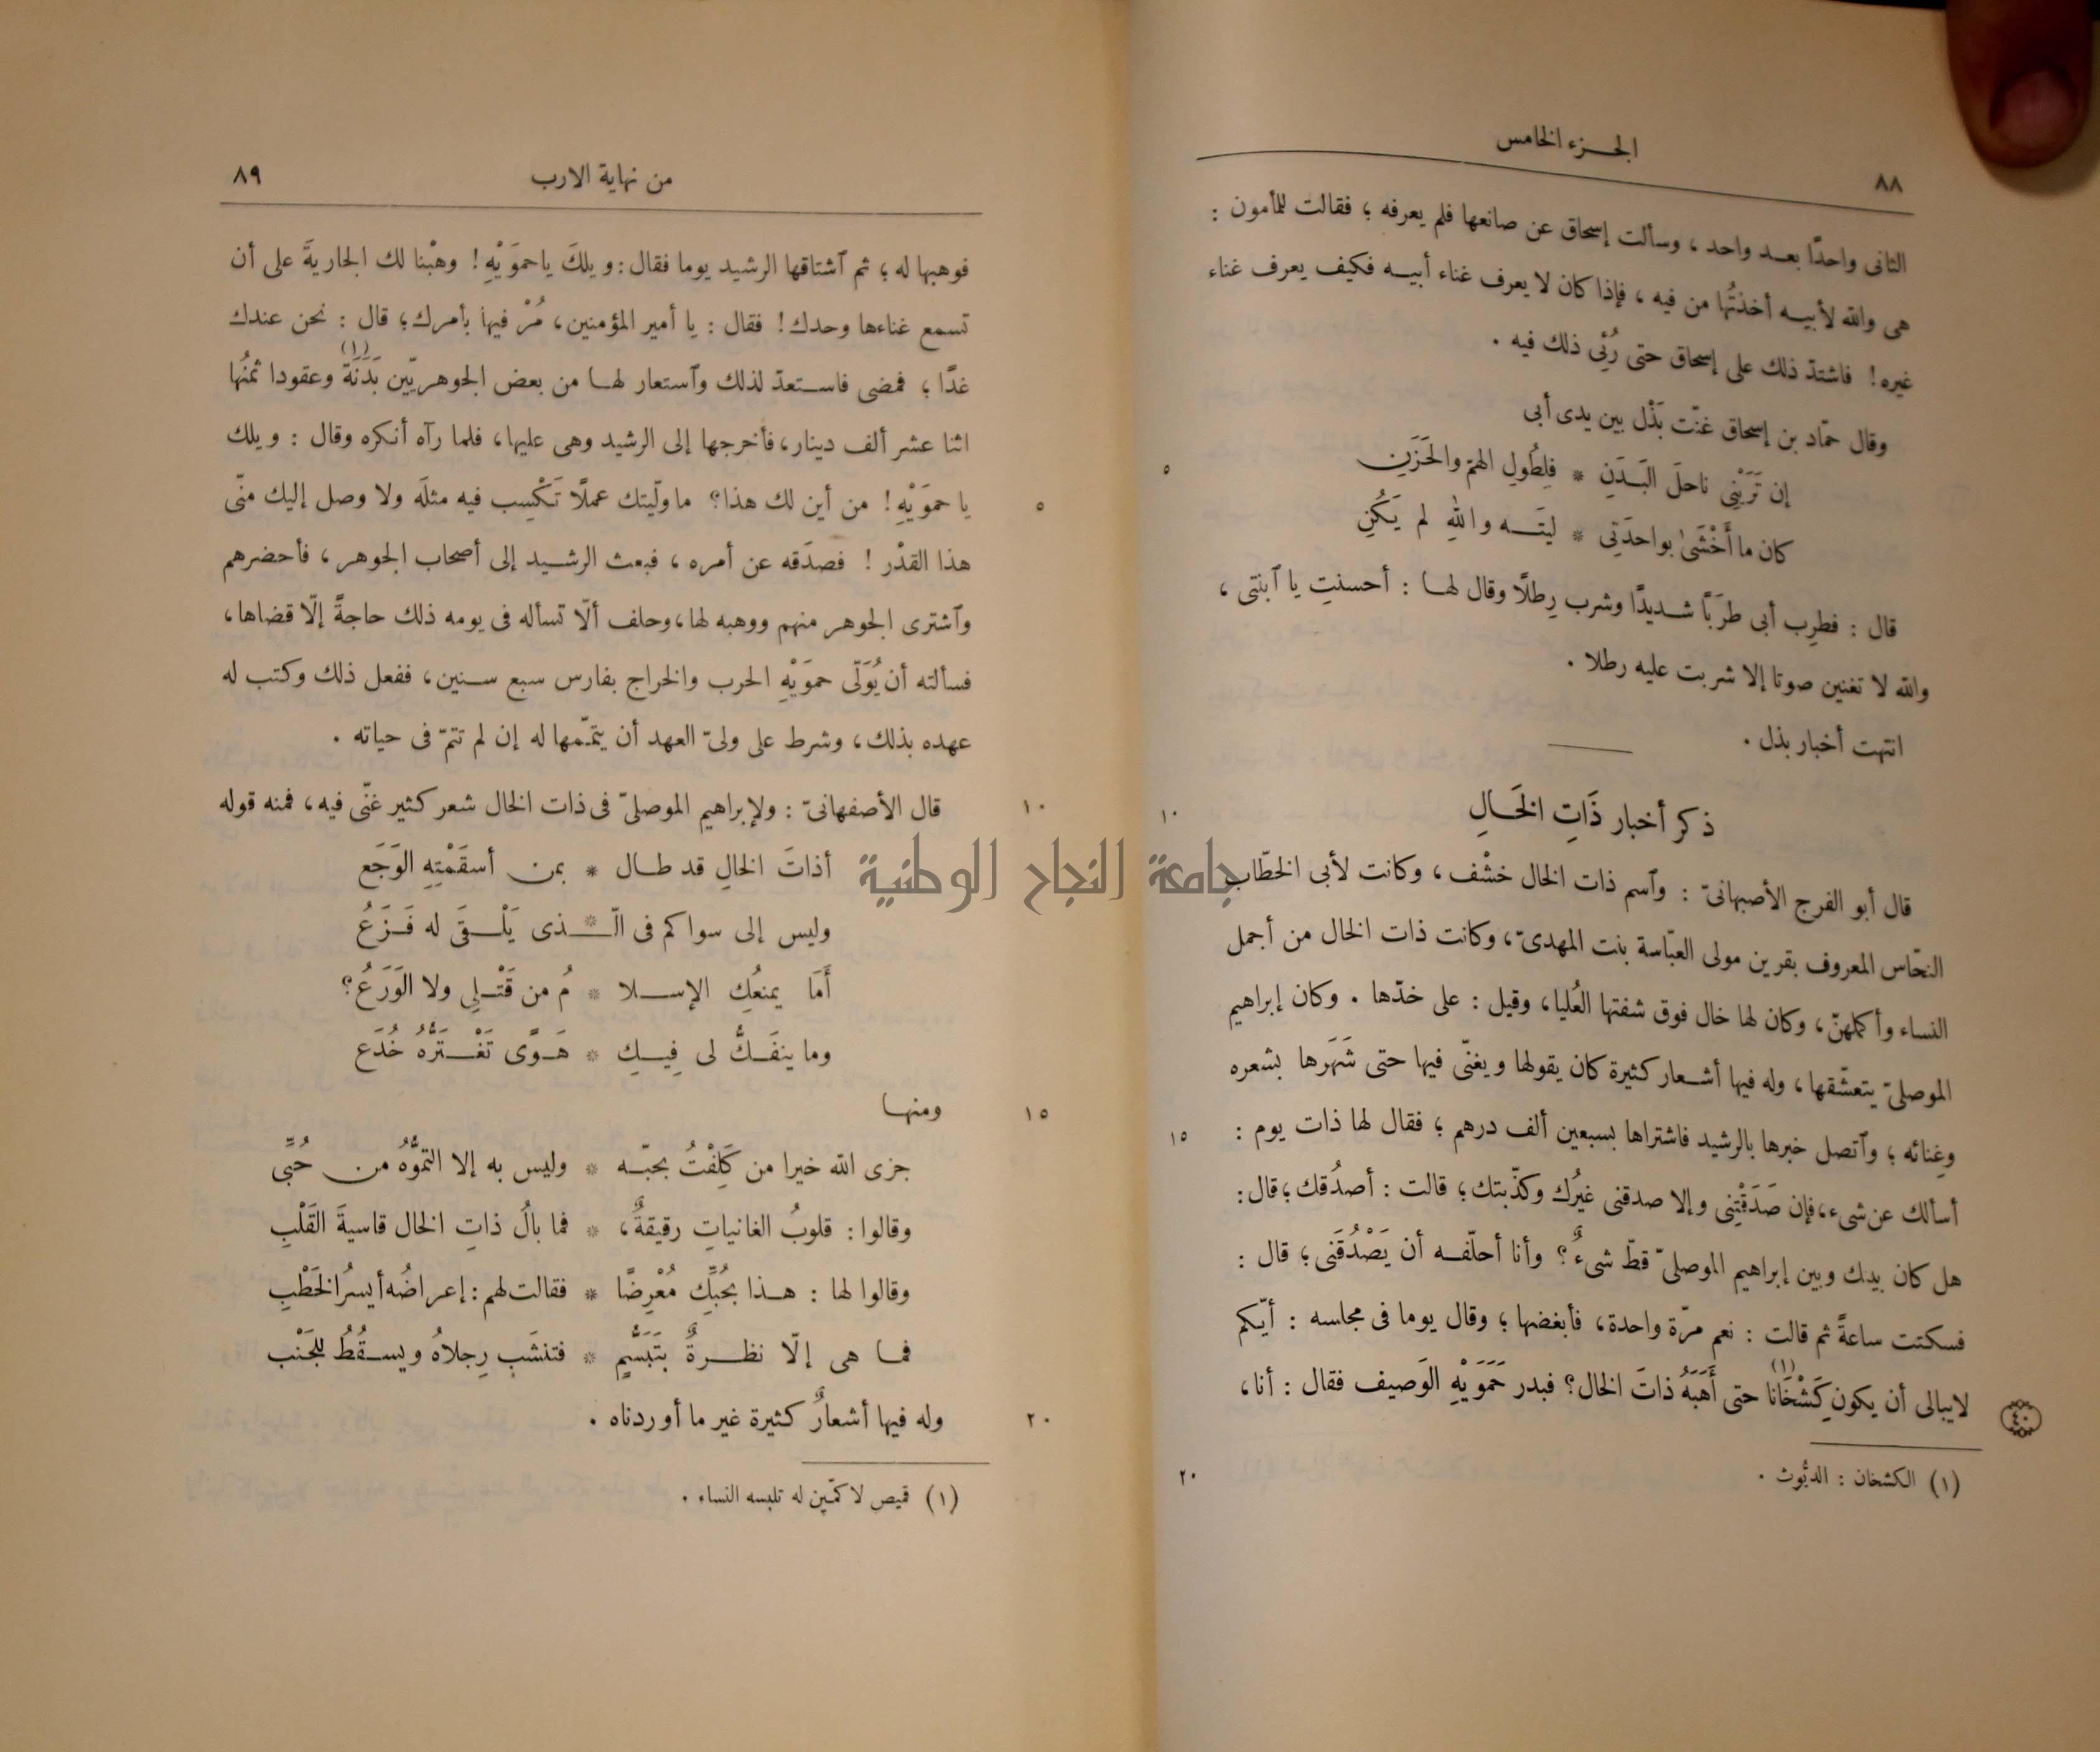 ٨٨
الجزء الخامس
الثانى واحدًا بعد واحد ، وسألت إسحاق عن صانعها فلم يعرفه ؛ فقالت للمأمون :
هى والله لأبيه أخذتُها من فيه ، فإذا كان لا يعرف غناء أبيه فكيف يعرف غناء
غيره ! فاشتدّ ذلك على إسحاق حتى رُئِى ذلك فيه .
وقال حمّاد بن إسحاق غنّت بَذْل بين يدى أبى
إن تَرَيْنِى ناحلَ البَدَنِ * فلِطُولِ الهمّ والحَزَنِ
كان ما أَخْشَىٰ بواحدَتِى * ليتَه واللهِ لم يَكُنِ
٥
قال : فطرِب أبى طرَبًا شديدًا وشرب رِطلًا وقال لها : أحسنتِ يا ٱبنتى ،
والله لا تغنين صوتا إلا شربت عليه رطلا .
انتهت أخبار بذل .
ذكر أخبار ذَاتِ الخَالِ
١٠
قال أبو الفرج الأصبهانىّ : وٱسم ذات الخال خشْف ، وكانت لأبى الخطّاب
النخّاس المعروف بقرين مولى العبّاسة بنت المهدىّ ، وكانت ذات الخال من أجمل
النساء وأكملهنّ ، وكان لها خال فوق شفتها العُليا ، وقيل : على خدّها . وكان إبراهيم
الموصلىّ يتعشّقها ، وله فيها أشعار كثيرة كان يقولها ويغنّى فيها حتى شَهَرها بشعره
وغِنائه ؛ وٱتصل خبرها بالرشيد فاشتراها بسبعين ألف درهم ؛ فقال لها ذات يوم :
١٥
أسألك عن شىء ، فإن صَدَقْتِنِى وإلا صدقنى غيرُك وكذّبتك ؛ قالت : أصدُقك ؛ قال :
هل كان بينك وبين إبراهيم الموصلىّ قطّ شىءٌ ؟ وأنا أحلّفه أن يَصْدُقَنى ؛ قال :
فسكتت ساعةً ثم قالت : نعم مرّة واحدة ، فأبغضها ؛ وقال يوما فى مجلسه : أيّكم
لا يبالى أن يكون كَشْخَانا (١) حتى أَهَبَهُ ذاتَ الخال ؟ فبدر حَمَوَيْهِ الوَصيف فقال : أنا ،
٤٠
(١) الكشخان : الديُّوث .
٢٠
من نهاية الارب
٨٩
فوهبها له ؛ ثم ٱشتاقها الرشيد يوما فقال : ويلكَ يا حموَيْهِ ! وهبْنا لك الجاريةَ على أن
تسمع غناءها وحدك ! فقال : يا أمير المؤمنين ، مُرْ فيها بأمرك ؛ قال : نحن عندك
غدًا ؛ فمضى فاستعدّ لذلك وٱستعار لها من بعض الجوهريّين بَدَنَة (١) وعقودا ثمنُها
اثنا عشر ألف دينار ، فأخرجها إلى الرشيد وهى عليها ، فلما رآه أنكره وقال : ويلك
يا حموَيْهِ ! من أين لك هذا ؟ ما ولّيتك عملًا تَكْسِب فيه مثلَه ولا وصل إليك منّى
٥
هذا القدْر ! فصدَقه عن أمره ، فبعث الرشيد إلى أصحاب الجوهر ، فأحضرهم
وٱشترى الجوهر منهم ووهبه لها ، وحلف ألّا تسأله فى يومه ذلك حاجةً إلّا قضاها ،
فسألته أن يُوَلّى حموَيْهِ الحرب والخراج بفارس سبع سنين ، ففعل ذلك وكتب له
عهده بذلك ، وشرط على ولىّ العهد أن يتمّمها له إن لم تتمّ فى حياته .
قال الأصفهانىّ : ولإبراهيم الموصلىّ فى ذات الخال شعر كثير غنّى فيه ، فمنه قوله
١٠
أذاتَ الخالِ قد طال * بمن أسقَمْتِهِ الوَجَع
وليس إلى سواكم فى الّـ * ـذى يَلْقَى له فَزَعُ
أَمَا يمنعُكِ الإسلا * مُ من قَتْلِى ولا الوَرَعُ ؟
وما ينفَكُّ لى فِيكِ * هَوًى تَغْتَرُّهُ خُدَع
ومنها
١٥
جزى الله خيرا من كَلِفْتُ بحبّه * وليس به إلا التموُّهُ من حُبِّى
وقالوا : قلوبُ الغانياتِ رقيقةٌ ، * فما بالُ ذاتِ الخال قاسيةَ القَلْبِ
وقالوا لها : هذا بحُبِّكِ مُعْرِضًا * فقالت لهم : إعراضُه أيسرُ الخَطْبِ
فما هى إلّا نظرةٌ بتَبَسُّمٍ * فتنشَب رِجلاهُ ويسقُطُ للجَنْب
وله فيها أشعارٌ كثيرة غير ما أوردناه .
٢٠
(١) قميص لا كمّين له تلبسه النساء .
جامعة النجاح الوطنية